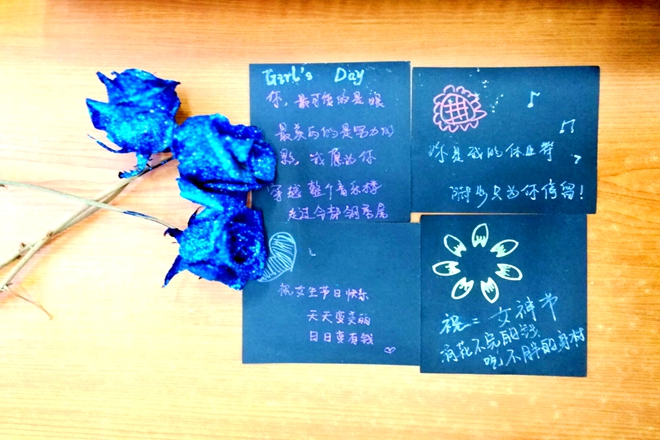 Girl's Day
你，最可爱的是眼
最美的你是努力的
影，我愿为你
穿越整个音乐楼
走过今静钢琴尾
你是我的休止符
脚步只为你停留！
祝女生节日快乐
天天变美丽
日日变有钱
祝：女神节
有花不完的钱
吃不胖的身材